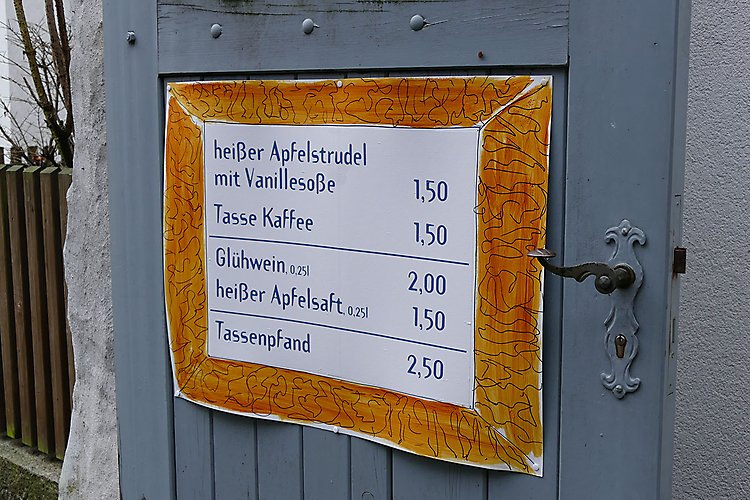 heißer Apfelstrudel
mit Vanillesoße 1,50
Tasse Kaffee 1,50
Glühwein, 0,25l 2,00
heißer Apfelsaft, 0,25l 1,50
Tassenpfand 2,50